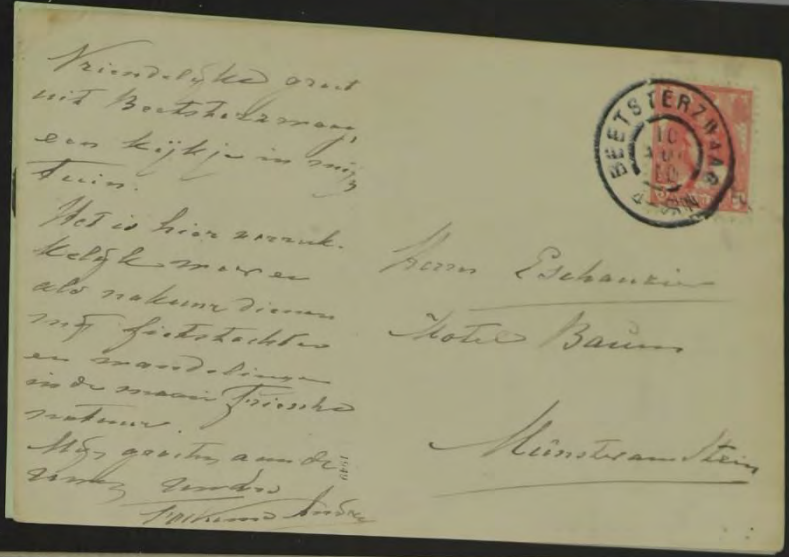 Vriendelijke groet
uit Beetsterzwaag,
een kijkje in mijn
tuin.
Het is hier verruk-
kelijk
als nakuur dienen
mij fietstochten
en wandelingen
in de mooie Friesche
natuur.
Mijn groeten aan de
BEETSTERZWAAG
10
10
4-5
Herrn Eschauzier
Hotel Baum
Münster am Stein
1949